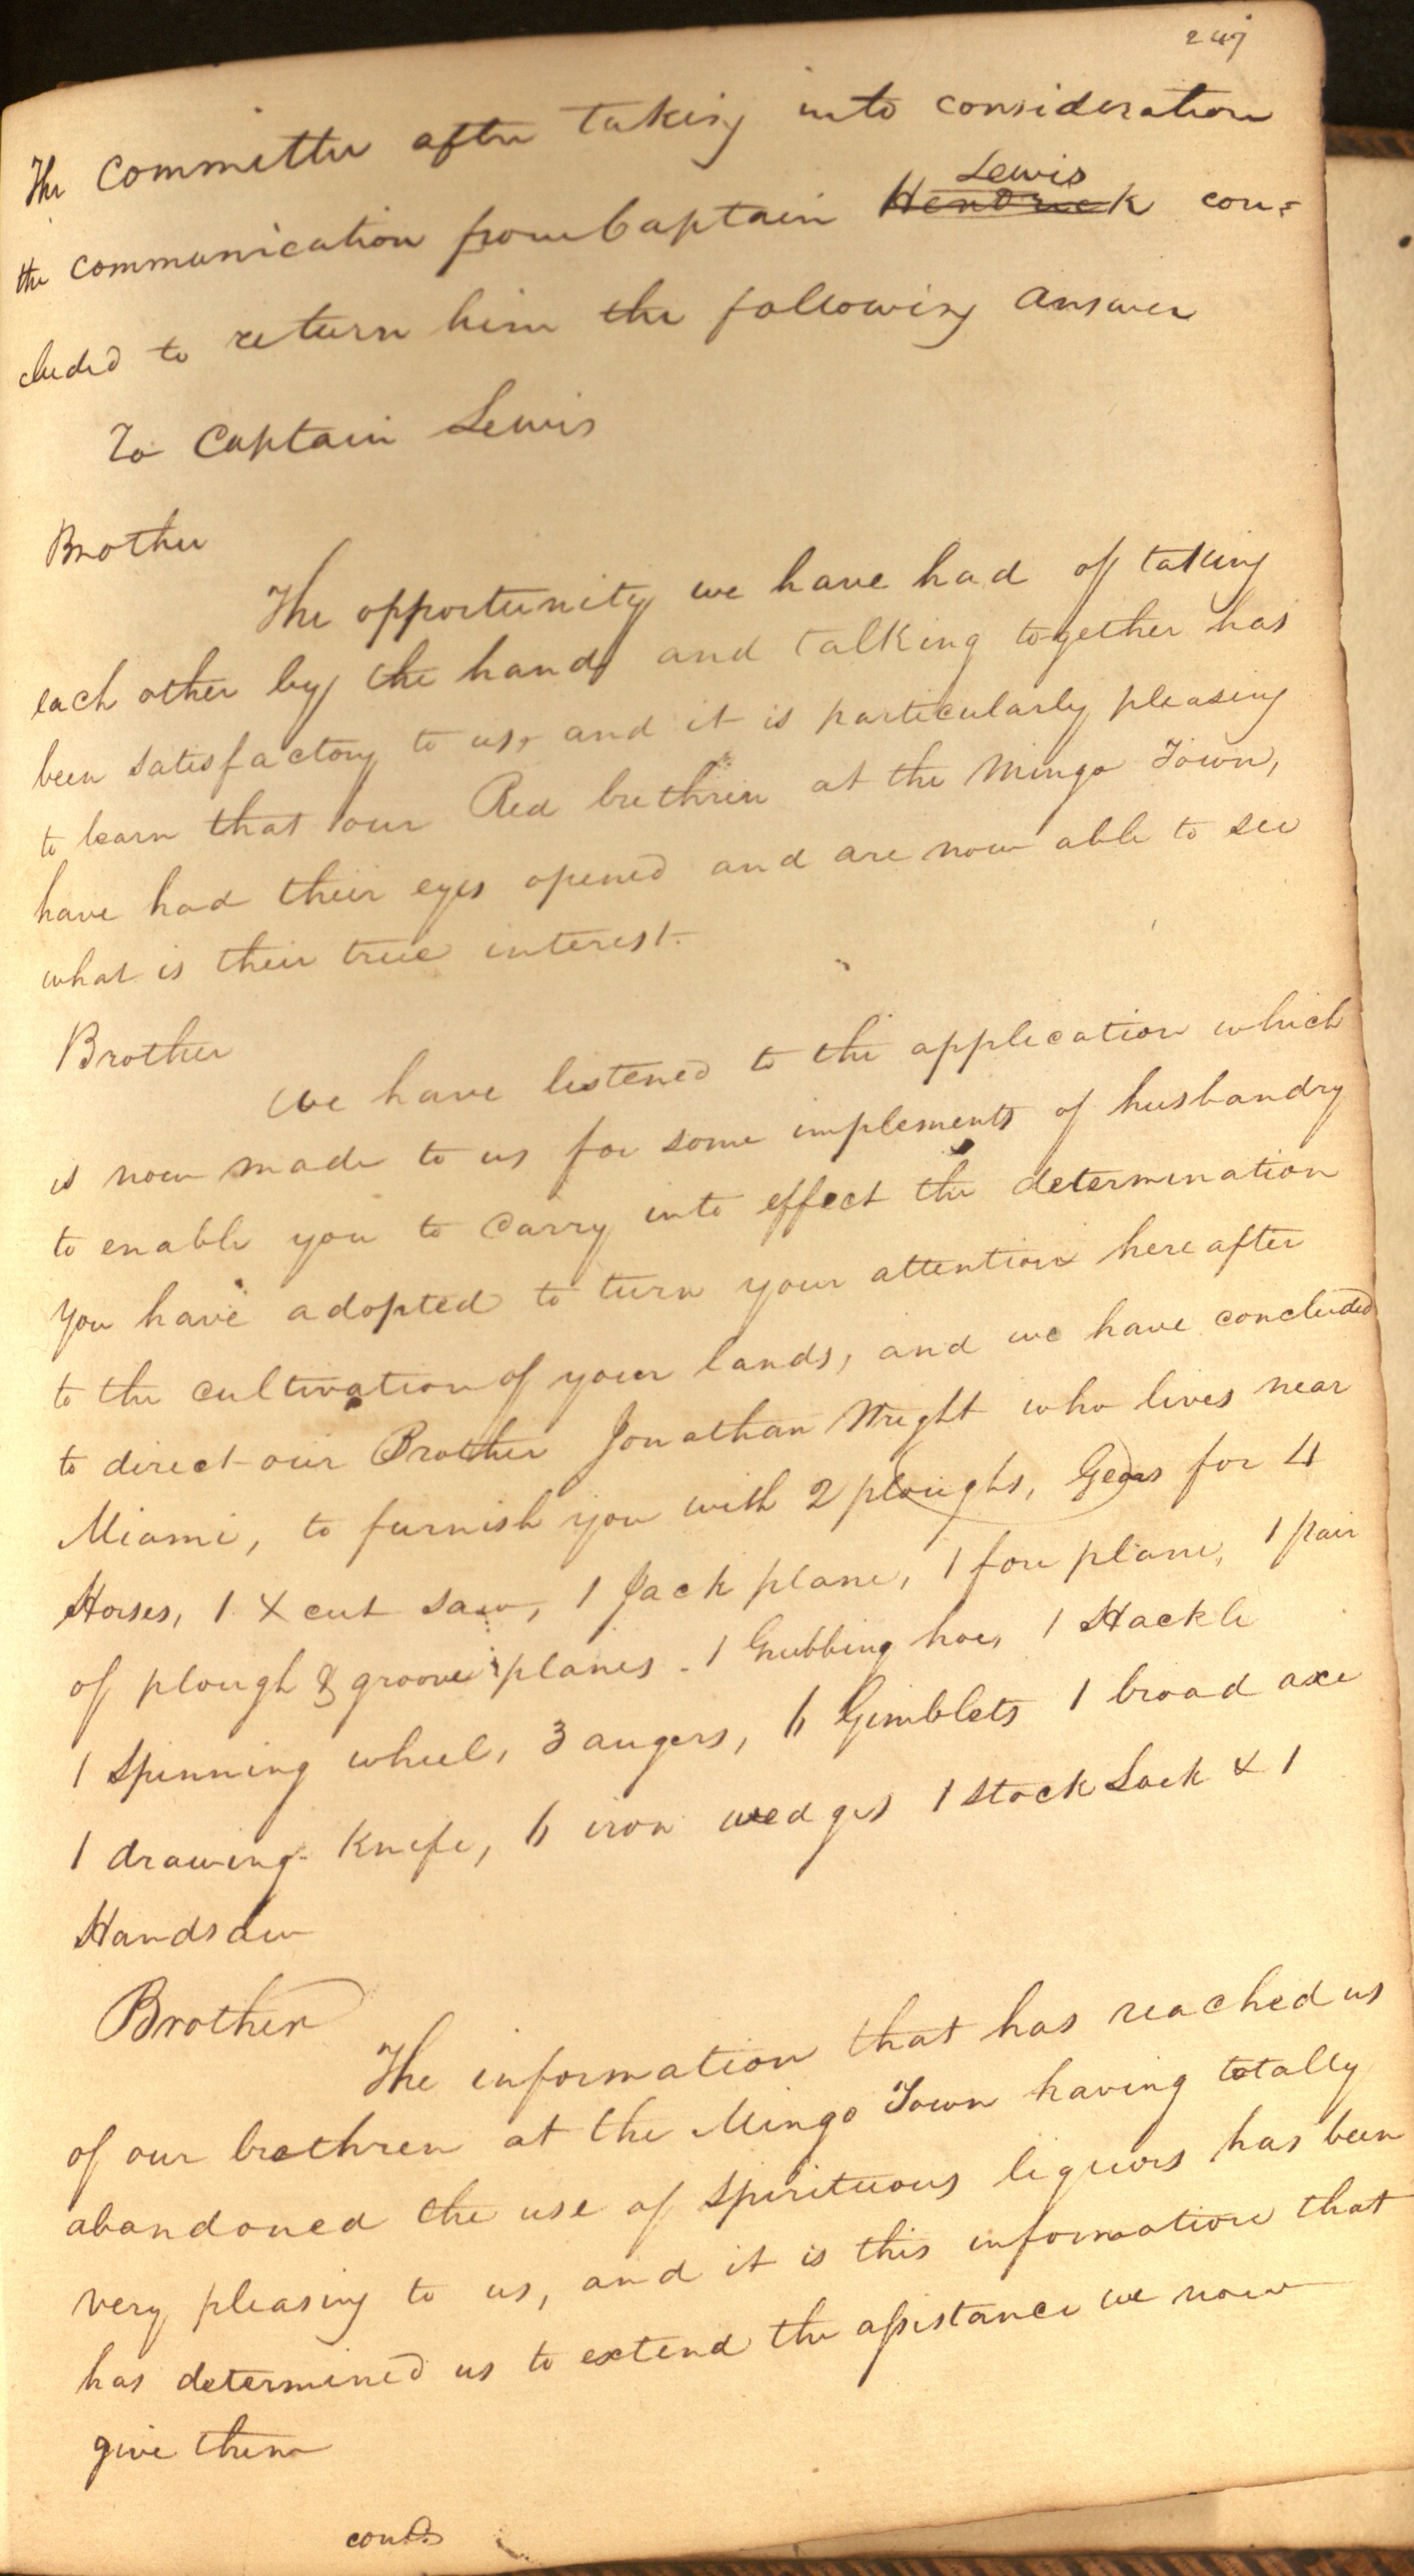 The committee after taking into consideration
Lewis
the communication from Captain Hendrick con=
cluded to return him the following answer
To Captain Lewis
Brother
The opportunity we have had of taking
each other by the hand and talking together has
been satisfactory to us, and it is particularly pleasing
to learn that our Red brethren at the Mingo Town,
have had their eyes opened and are now able to see
what is their true interest.
Brother
We have listened to the application which
is now made to us for some implements of husbandry
to enable you to carry into effect the determination
you have adopted to turn your attention hereafter
to the cultivation of your lands, and we have concluded
to direct our Brother Jonathan Wright who lives near
Miami, to furnish you with 2 ploughs, Gears for 4
Horses, 1 X cut saw, 1 Jack plane, 1 fore plane, 1 pair
of plough & groove planes - 1 Grubbing hoe, 1 Hackle
1 Spinning wheel, 3 augers, 6 Gimblets 1 broad axe
1 drawing-knife, 6 iron wedges 1 Stock Lock & 1
Handsaw
Brother
The information that has reached us
of our brethren at the Mingo Town having totally
abandoned the use of Spirituous liquors has been
very pleasing to us, and it is this information that
has determined us to extend the assistance we now
give them